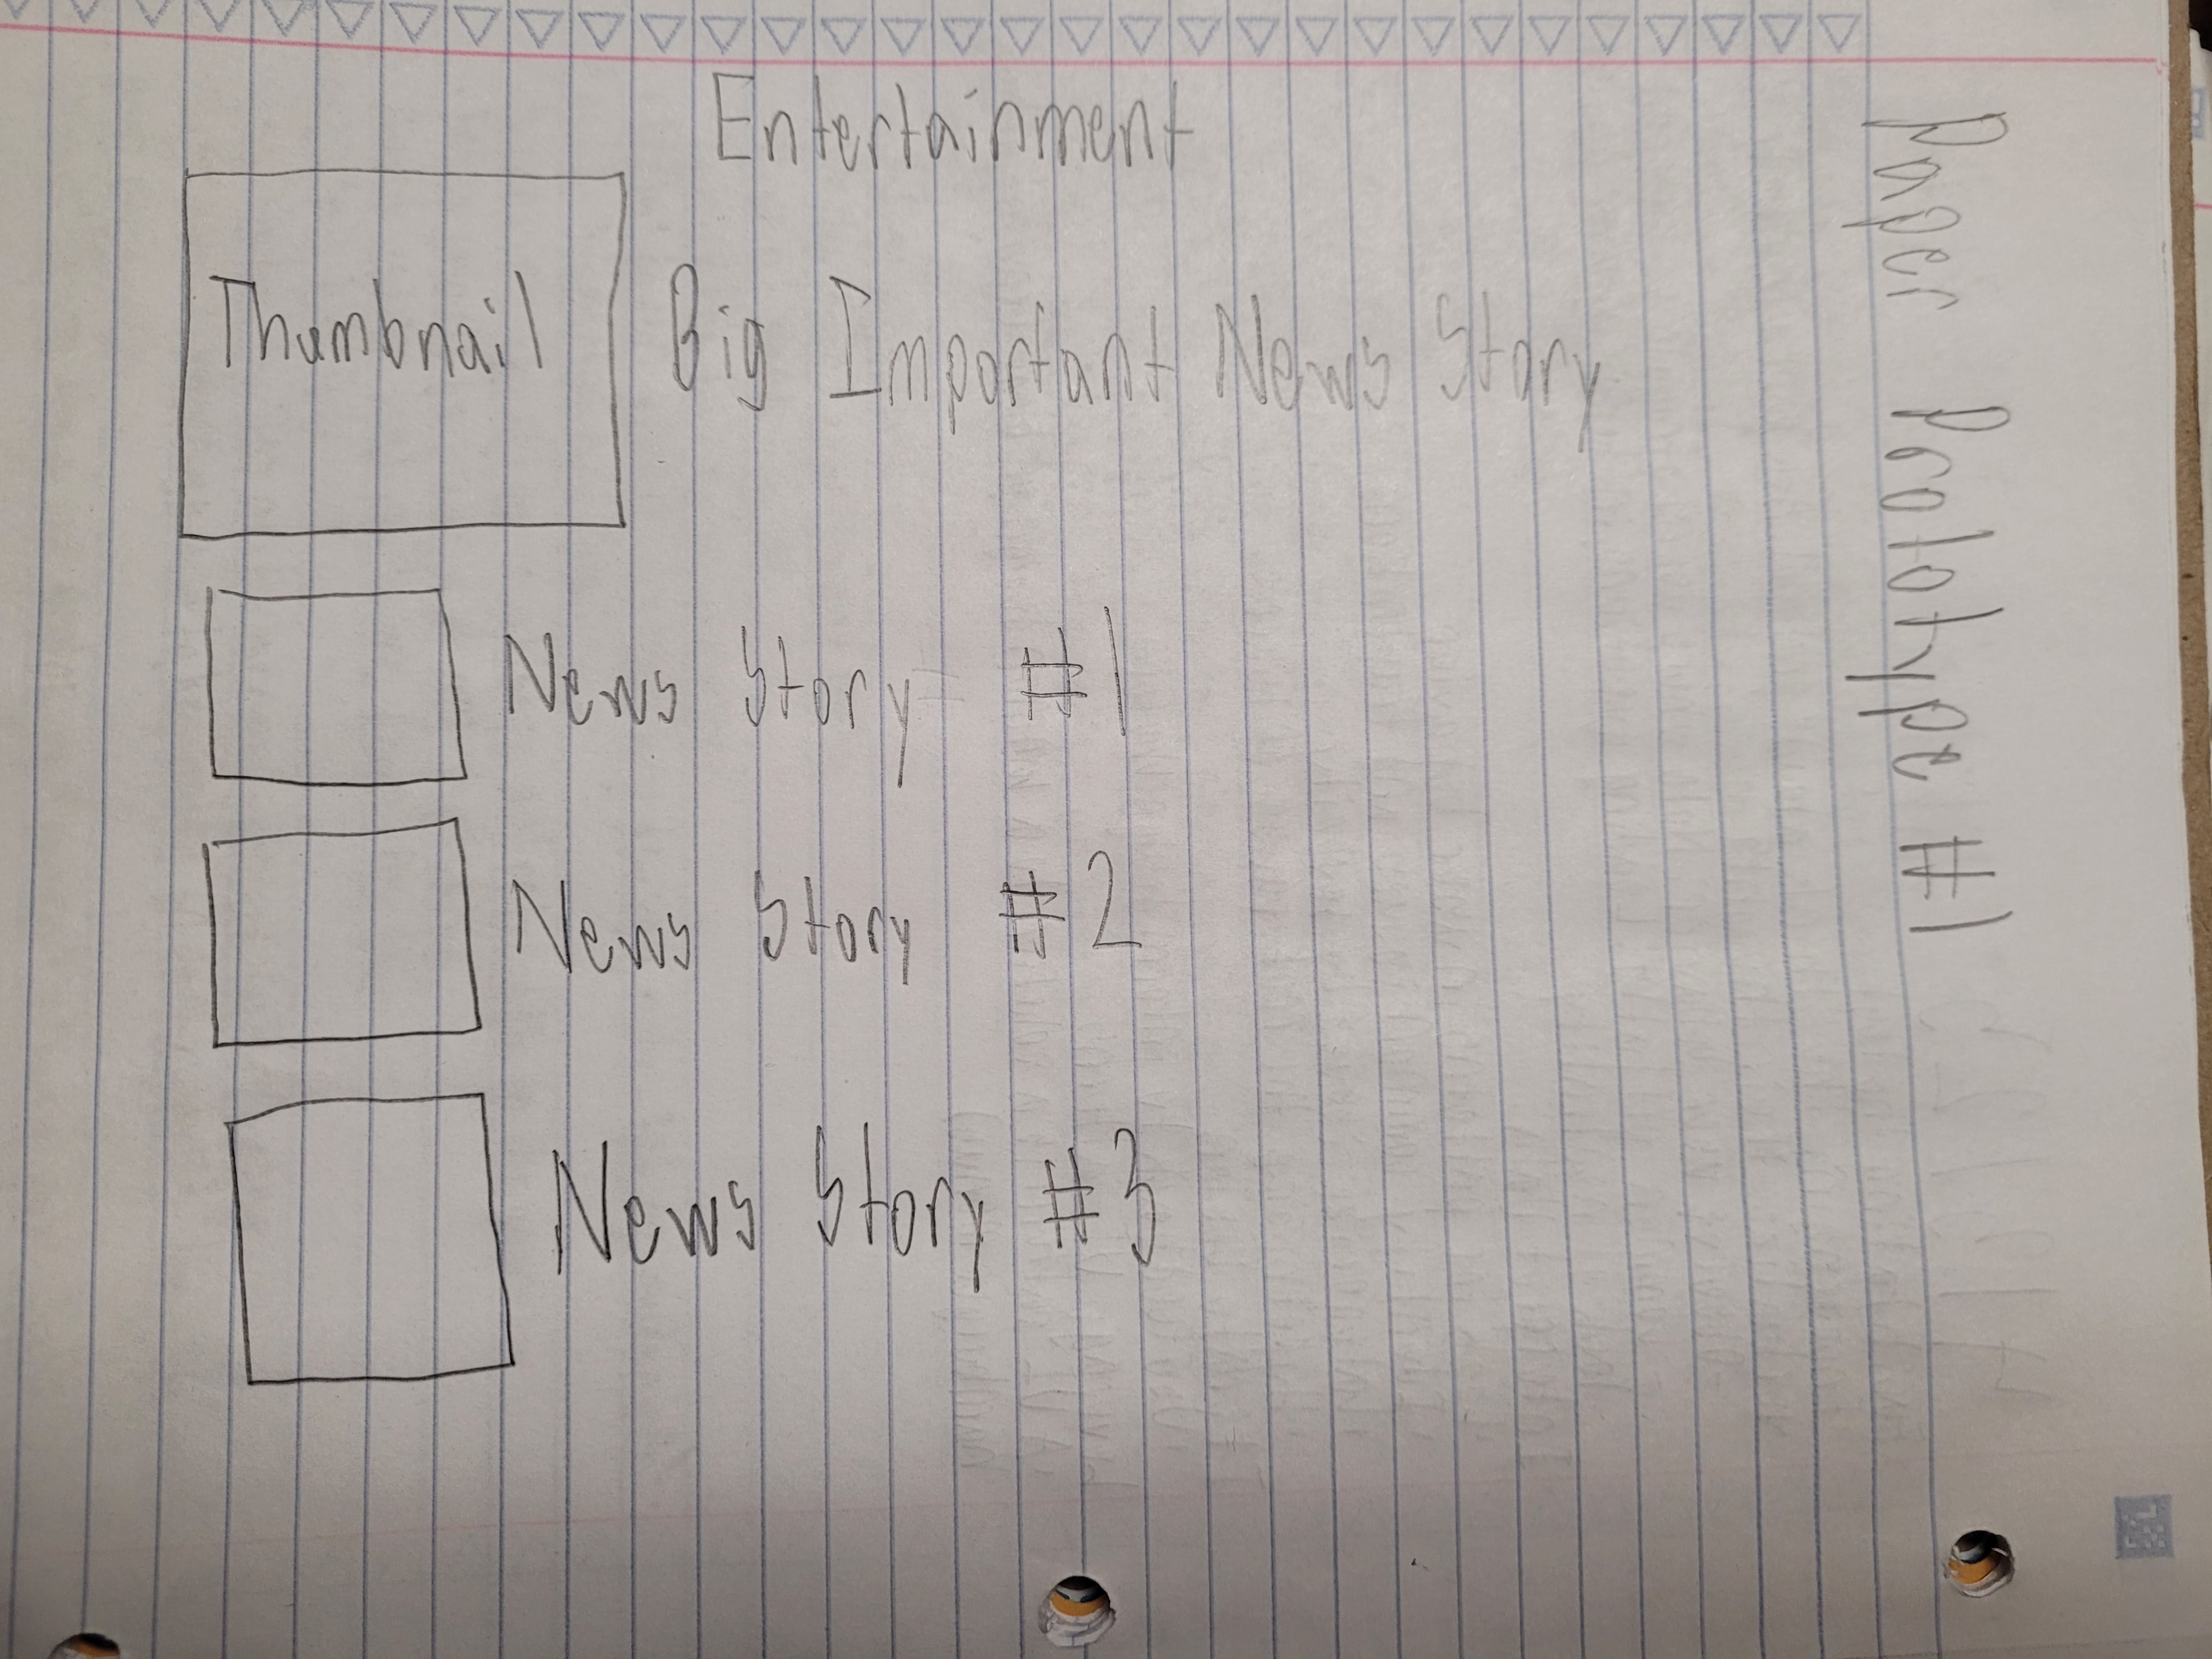 Paper Prototype #1
Entertainment
Thumbnail Big Important News Story
News Story #1
News Story #2
News Story #3